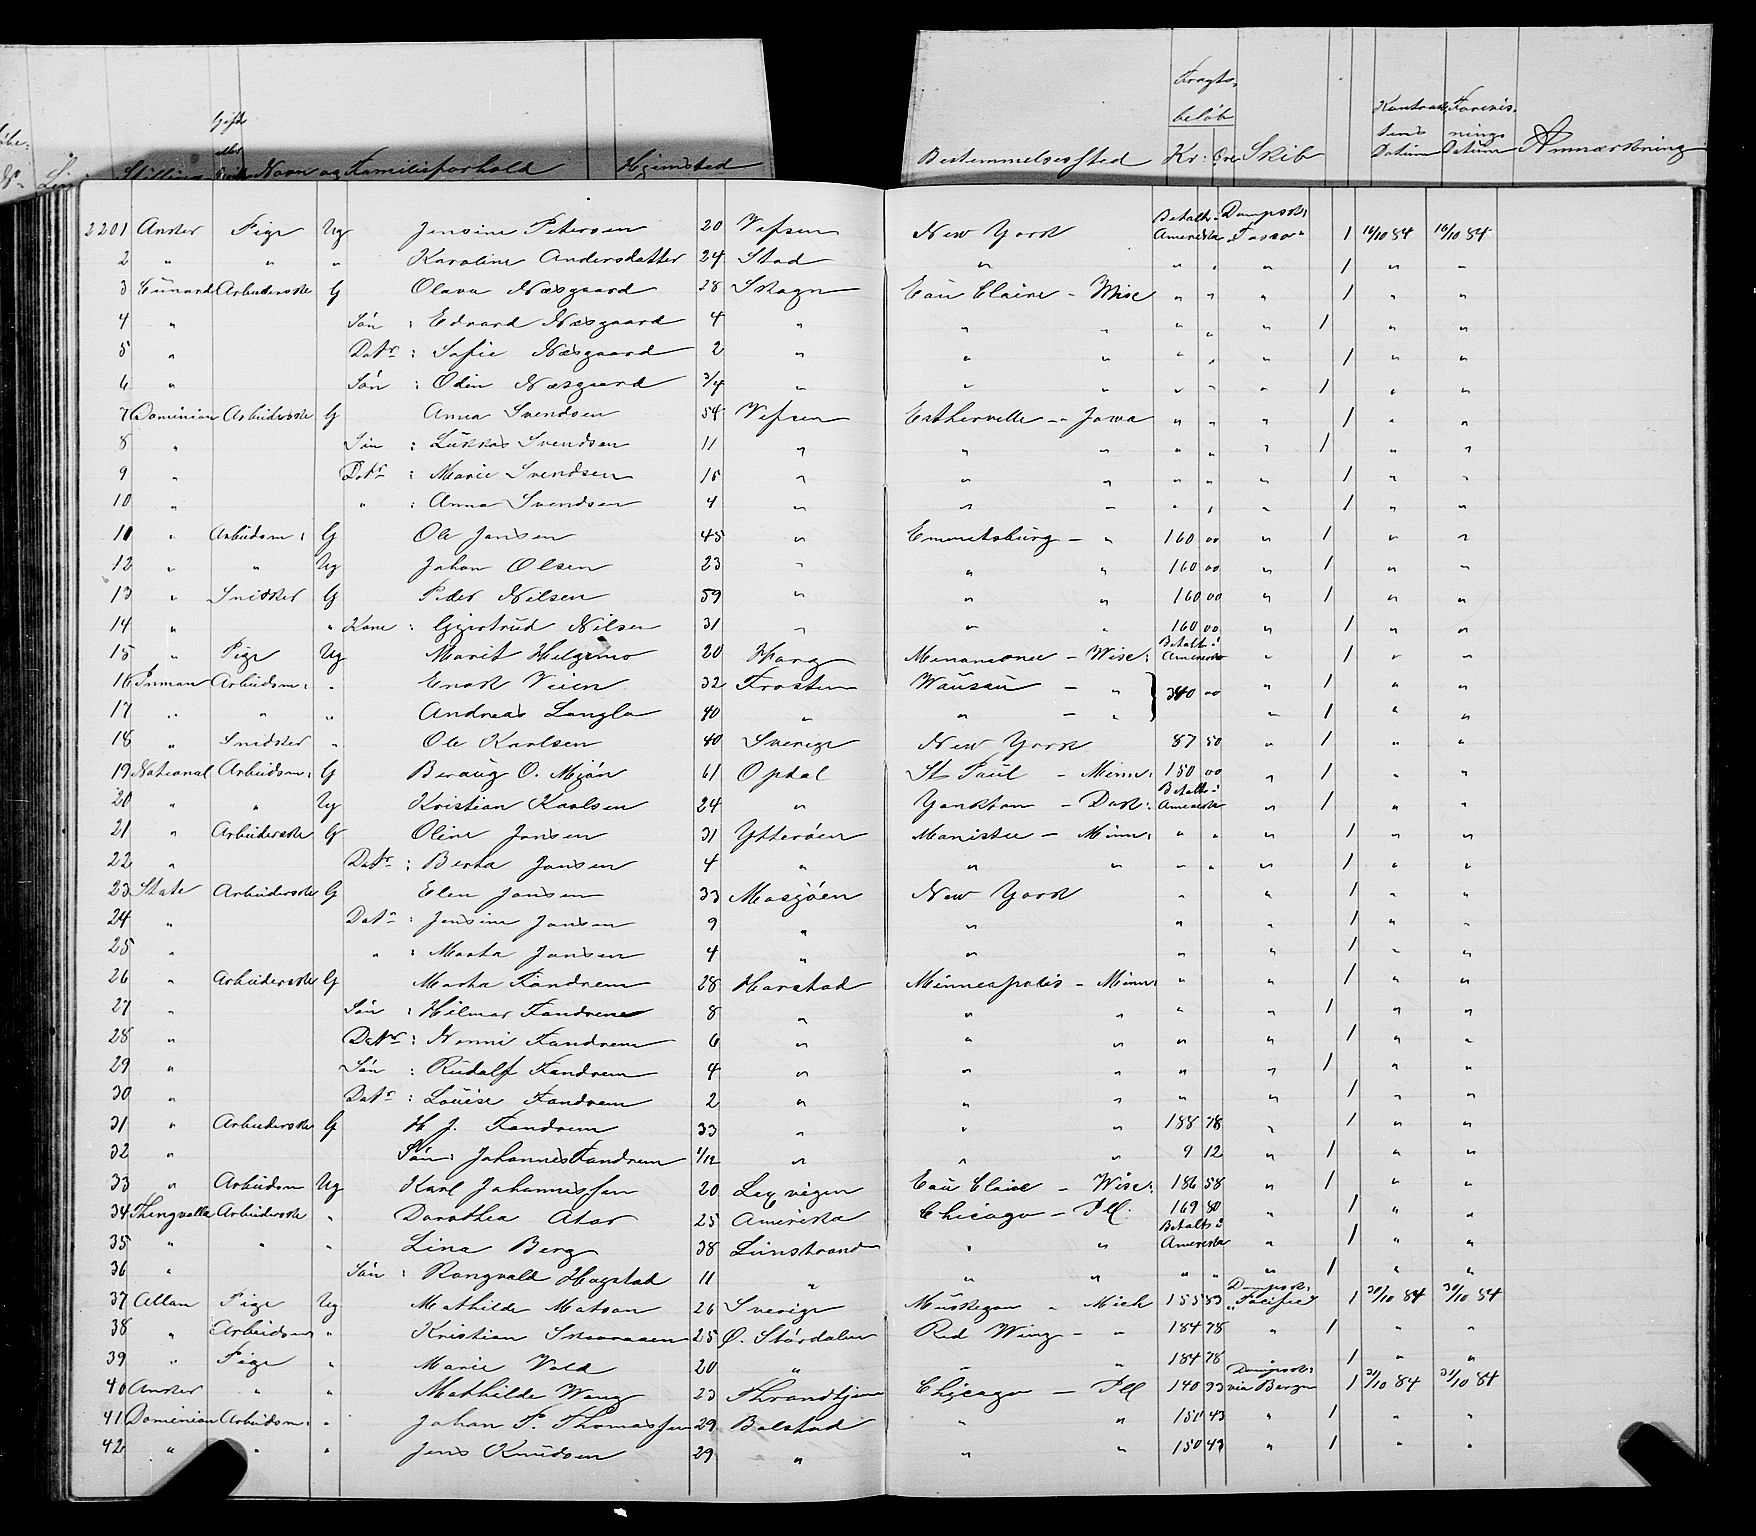 Gift
eller
Linie Stilling Navn og Familieforhold Hjemsted Bestemmelsessted Fragtbeløb Kr: Øre Skib Kontraktens Datum Datum Anmærkning
2201 Anker Pige Ug Jensine Petersen 20 Vefsen New York Betalt i Amerika Dampsk: Tasso 1 16/10 84 16/10 84
2 " " " Karoline Andersdatter 24 Stod " " " " 1 " "
3 Cunard Arbeiderske G Olava Næsgaard 28 Skogn Eau Claire - Wisc " " " 1 " "
4 " Søn : Edvard Næsgaard 4 " " " " " " 1 " "
5 " Datr : Sofie Næsgaard 2 " " " " " " 1 " "
6 " Søn : Odin Næsgaard 3/4 " " " " " " 1 " "
7 Dominion Arbeiderske G Anna Svendsen 54 Vefsen Estherville - Jowa " " " 1 " "
8 " Søn : Lukkas Svendsen 11 " " " " " " 1 " "
9 " Datr : Marie Svendsen 15 " " " " " " 1 " "
10 " " : Anna Svendsen 4 " " " " " " 1 " "
11 " Arbeidsm: G Ole Jensen 45 " Emmetsburg - " 160 00 " 1 " "
12 " " Ug Johan Olsen 23 " " " 160 00 " 1 " "
13 " Snikker G Peder Nilsen 59 " " " 160 00 " 1 " "
14 " " Kone : Gjertrud Nilsen 31 " " " 160 00 " 1 " "
15 " Pige Ug Marit Helgemo 20 Horg Menomonee - Wisc: Betalt i Amerika " 1 " "
16 Inman Arbeidsm: " Enok Veien 32 Frosten Wausau - " } 340 00 " 1 " "
17 " " " Andreas Langlo 40 " " - " " 1 " "
18 " Snidker " Ole Karlsen 40 Sverige New York 87 50 " 1 " "
19 National Arbeidsm: G Beraug O. Mjøn 61 Opdal St Paul - Minn: 150 00 " 1 " "
20 " " Ug Kristian Karlsen 24 " Yankton - Dak: Betalt i Amerika " 1 " "
21 " Arbeiderske G Oline Jansen 31 Ytterøen Manistee - Minn: " " " 1 " "
22 " Datr : Berta Jansen 4 " " " " " " 1 " "
23 State Arbeiderske G Elen Jansen 33 Mosjøen New York " " 1 " "
24 " Datr : Jensine Jansen 9 " " " " 1 " "
25 " " : Marta Jansen 4 " " " " 1 " "
26 " Arbeiderske G Marta Fandrem 28 Harstad Minneapolis - Minn: " " 1 " "
27 " Søn : Hilmar Fandrem 8 " " " " " 1 " "
28 " Datr : Nonni Fandrem 6 " " " " " 1 " "
29 " Søn : Rudolf Fandrem 4 " " " " " 1 " "
30 " Datr : Louise Fandrem 2 " " " " " 1 " "
31 " Arbeiderske G H J. Fandrem 33 " " " 158 78 " 1 " "
32 " Søn : Johannes Fandrem 1/12 " " " 9 12 " 1 " "
33 " Arbeidsm Ug Karl Johannissen 20 Lexvigen Eau Claire - Wisc: 186 58 " 1 " "
34 Thingvalla Arbeiderske " Dorothea 25 Amerika Chicago - Ill. 169 50 " 1 " "
35 " " " Lina Berg 38 Betalt i Amerika " 1 " "
36 " Søn : Rangvald Hogstad 11 " " " " " " 1 " "
37 Allan Pige Ug Mathilde Matson 26 Sverige Muskegon " Mich 155 83 Dampsk: "Pacific" 1 30/10 84 30/10 84
38 " Arbeidsm " Kristian 25 Ø. Stördalen Red Wing - " 184 78 " 1 " "
39 " Pige " Marie Vold 20 " " " 184 78 1 " "
40 Anker " " Mathilde Wang 23 Throndhjem Chicago - Ill 140 93 Dampsk: via Bergen 1 31/10 84 31/10 84
41 Dominion Arbeidsm: " Johan P. Thomassen 29 Bolstad " " 150 43 " 1 " "
42 " " " Jens Knudsen 29 " " " 150 43 " 1 " "